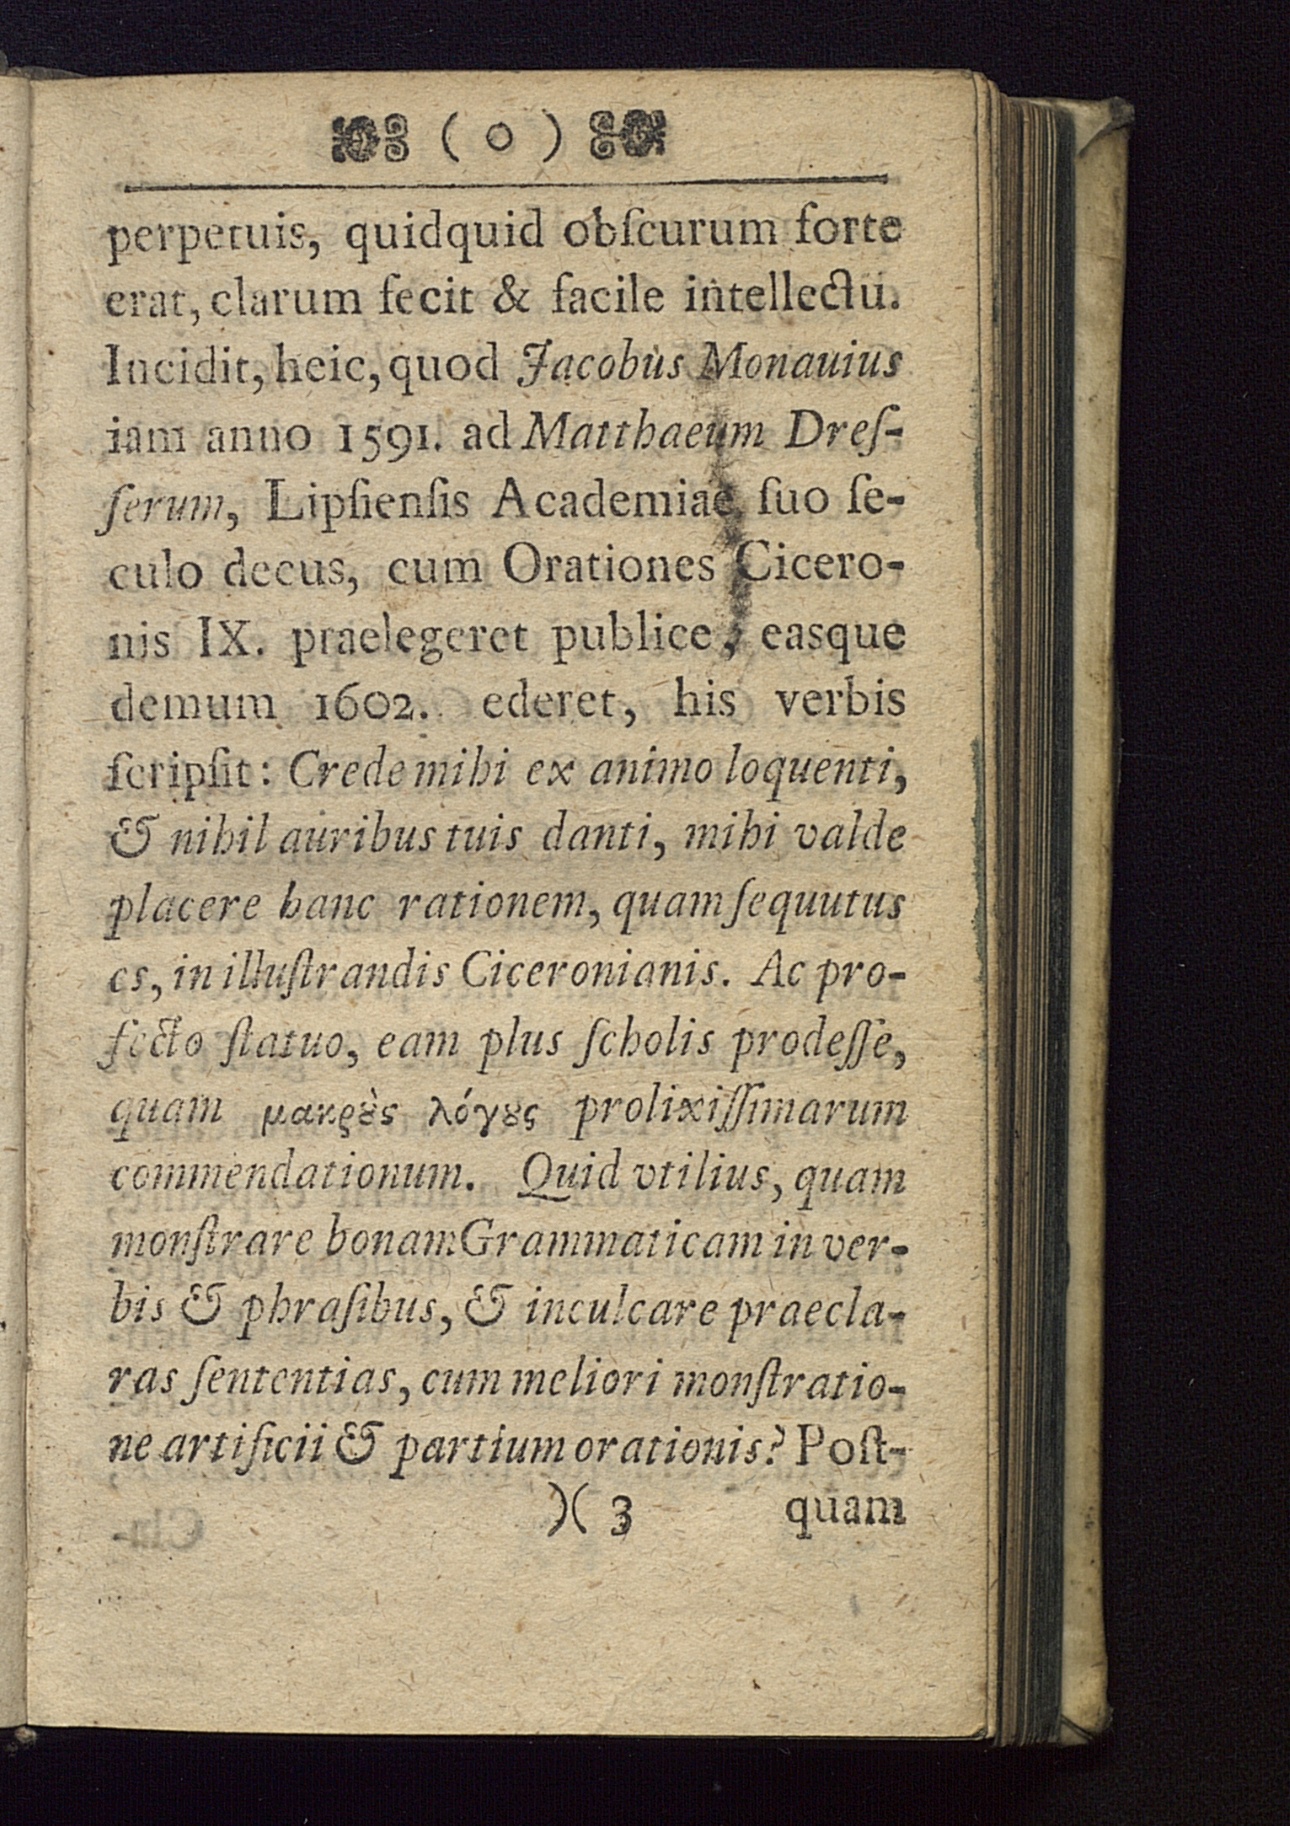 ( o )
perpetuis, quidquid obſcurum forte
erat, clarum fecit & facile intellectu.
Incidit, heic, quod Jacobus Monauius
iam anno 1591. ad Matthaeum Dreſ-
ſerum, Lipſienſis Academiae, ſuo ſe-
culo decus, cum Orationes Cicero-
nis IX. praelegeret publice, easque
demum 1602. ederet, his verbis
ſcripſit: Crede mihi ex animo loquenti,
& nihil auribus tuis danti, mihi valde
placere hanc rationem, quam ſequutus
es, in illuſtrandis Ciceronianis. Ac pro-
fecto ſtatuo, eam plus ſcholis prodeſſe,
quam μακρȣ̀ς λόγȣς prolixiſſimarum
commendationum. Quid vtilius, quam
monſtrare bonam Grammaticam in ver-
bis & phraſibus, & inculcare praecla-
ras ſententias, cum meliori monſtratio-
ne artificii & partium orationis? Poſt-
)( 3 quam